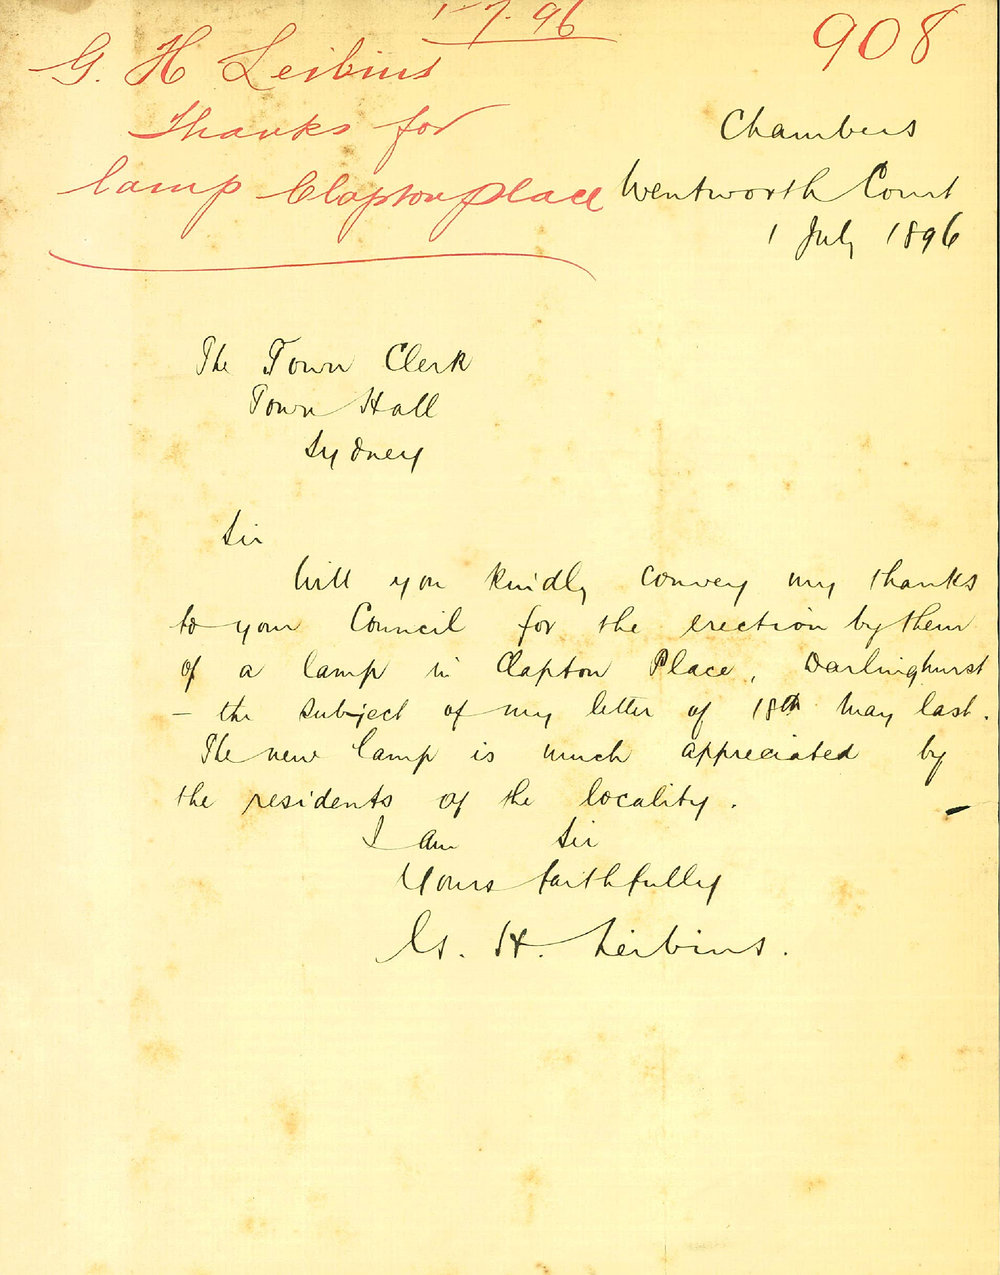 1-7.96
908
G. H Leibius
Thanks for
lamp Clapton place
Chambers
Wentworth Court
1 July 1896
The Town Clerk
Town Hall
Sydney
Sir
Will you kindly convey my thanks
to your Council for the erection by them
of a lamp in Clapton Place, Darlinghurst
– the subject of my letter of 18th May last.
The new lamp is much appreciated by
the residents of the locality.
I am Sir
Yours faithfully
G. H. Leibius.